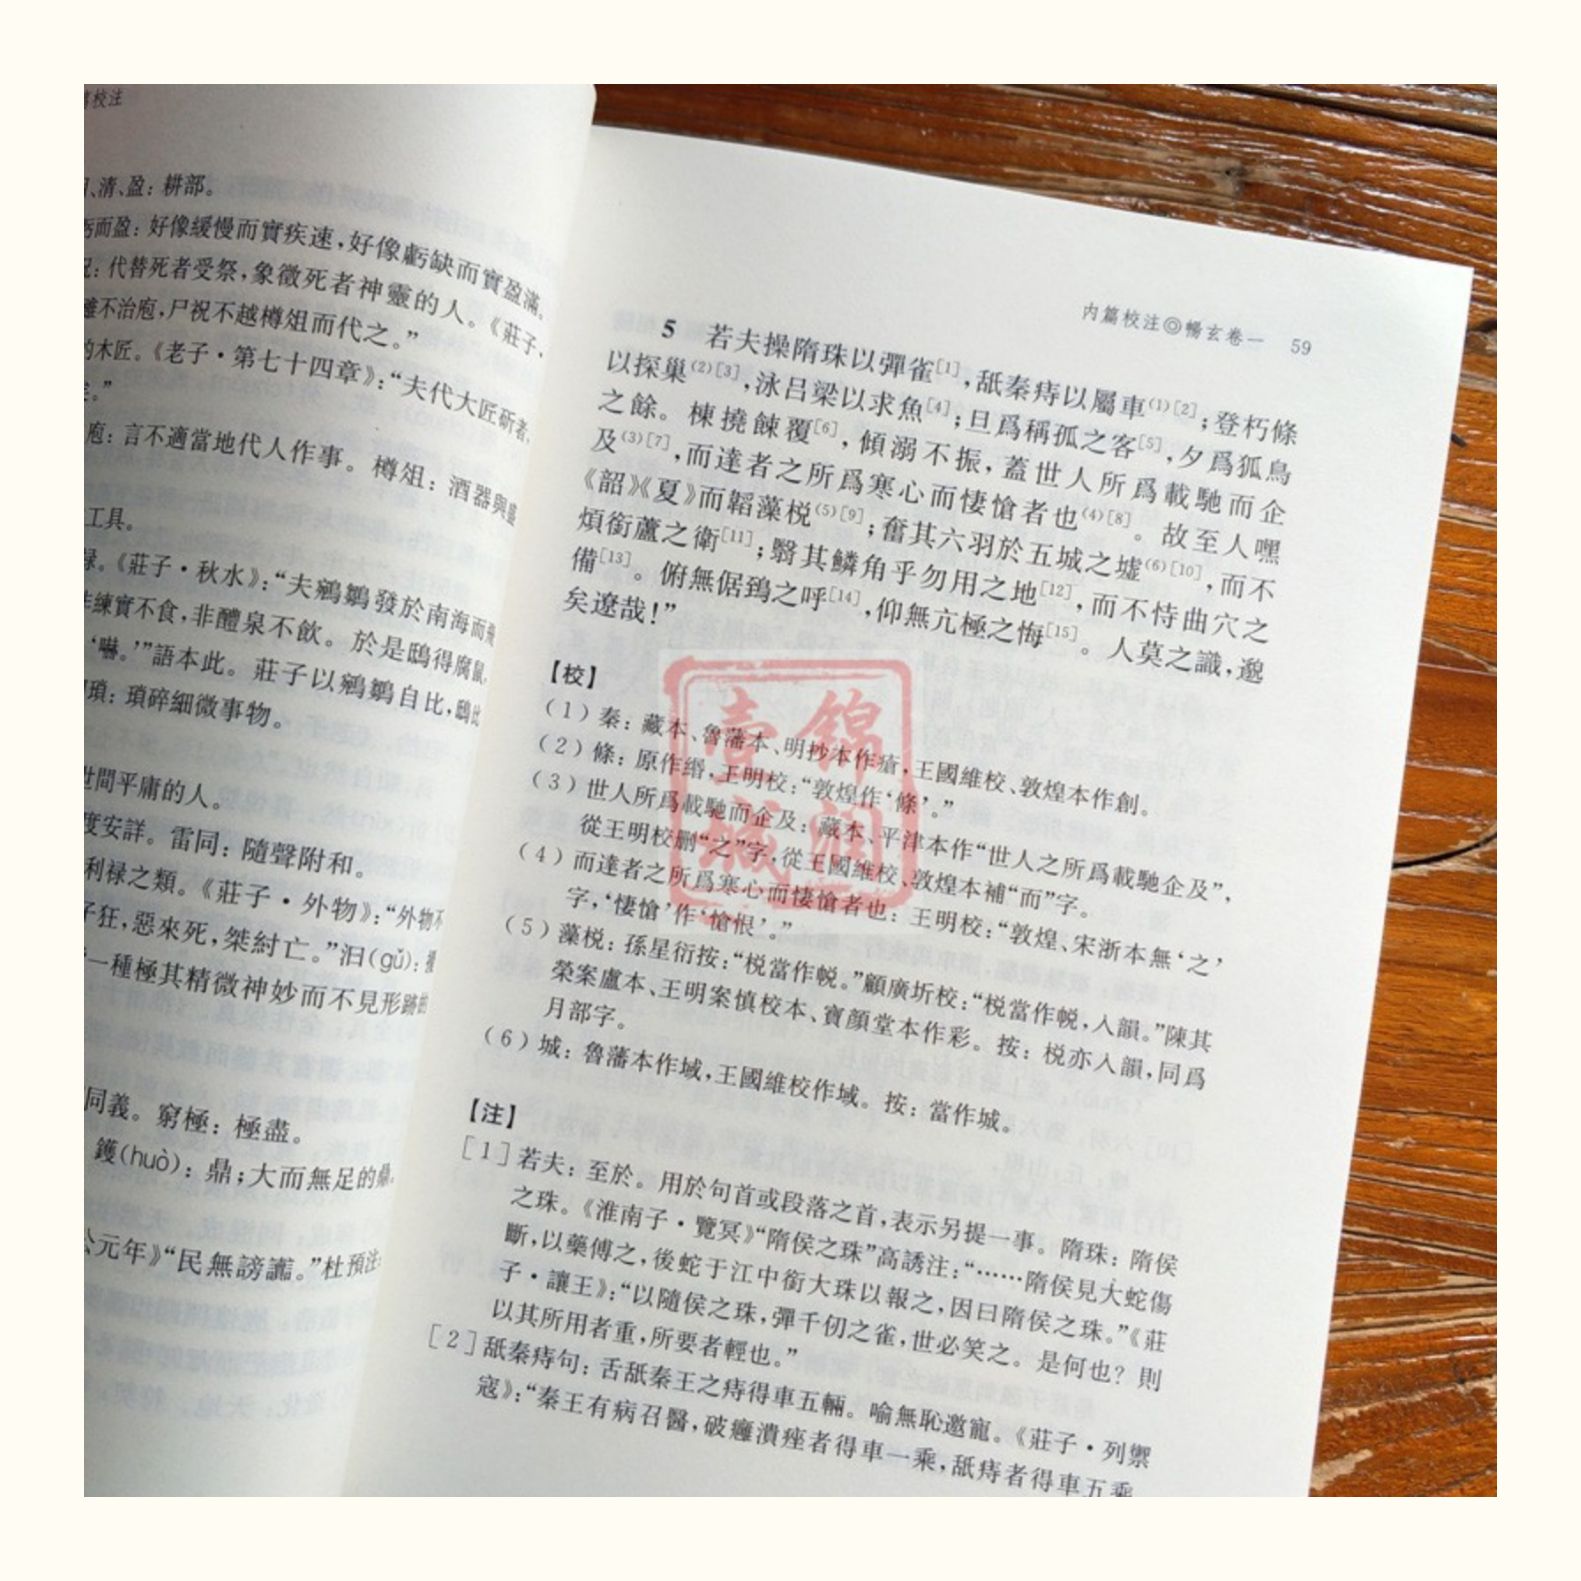 校注
、清、盈：耕部。
而盈：好像緩慢而實疾速，好像虧缺而實盈滿。
：代替死者受祭，象徵死者神靈的人。《莊子·
雖不治庖，尸祝不越樽俎而代之。”
的木匠。《老子·第七十四章》：“夫代大匠斫者，
矣。”
庖：言不適當地代人作事。樽俎：酒器與盛
工具。
。《莊子·秋水》：“夫鵷鶵發於南海而飛
非練實不食，非醴泉不飲。於是鴟得腐鼠，
‘嚇。’”語本此。莊子以鵷鶵自比，鴟比
瑣：瑣碎細微事物。
世間平庸的人。
度安詳。雷同：隨聲附和。
利禄之類。《莊子·外物》：“外物不
子狂，惡來死，桀紂亡。”汩(gǔ)：
一種極其精微神妙而不見形跡的
同義。窮極：極盡。
鑊(huò)：鼎；大而無足的鼎。
公元年》“民無謗讟。”杜預注：
内篇校注◎暢玄卷一 59
5 若夫操隋珠以彈雀[1]，舐秦痔以屬車(1)[2]；登朽條
以探巢(2)[3]，泳吕梁以求魚[4]；旦爲稱孤之客[5]，夕爲狐鳥
之餘。棟撓餗覆[6]，傾溺不振，蓋世人所爲載馳而企
及(3)[7]，而達者之所爲寒心而悽愴者也(4)[8]。故至人嘿
《韶》《夏》而韜藻梲(5)[9]；奮其六羽於五城之墟(6)[10]，而不
煩銜蘆之衛[11]；翳其鱗角乎勿用之地[12]，而不恃曲穴之
備[13]。俯無倨鵄之呼[14]，仰無亢極之悔[15]。人莫之識，邈
矣遼哉！”
【校】
(1) 秦：藏本、魯藩本、明抄本作瘡，王國維校、敦煌本作創。
(2) 條：原作緡，王明校：“敦煌作‘條’。”
(3) 世人所爲載馳而企及：藏本、平津本作“世人之所爲載馳企及”，
從王明校删“之”字，從王國維校、敦煌本補“而”字。
(4) 而達者之所爲寒心而悽愴者也：王明校：“敦煌、宋浙本無‘之’
字，‘悽愴’作‘愴恨’。”
(5) 藻梲：孫星衍按：“梲當作帨。”顧廣圻校：“梲當作帨，入韻。”陳其
榮案盧本、王明案慎校本、寶顔堂本作彩。按：梲亦入韻，同爲
月部字。
(6) 城：魯藩本作域，王國維校作域。按：當作城。
【注】
[1] 若夫：至於。用於句首或段落之首，表示另提一事。隋珠：隋侯
之珠。《淮南子·覽冥》“隋侯之珠”高誘注：“……隋侯見大蛇傷
斷，以藥傅之，後蛇于江中銜大珠以報之，因曰隋侯之珠。”《莊
子·讓王》：“以隨侯之珠，彈千仞之雀，世必笑之。是何也？則
以其所用者重，所要者輕也。”
[2] 舐秦痔句：舌舐秦王之痔得車五輛。喻無恥邀寵。《莊子·列禦
寇》：“秦王有病召醫，破癰潰痤者得車一乘，舐痔者得車五乘
壹錦
城潤